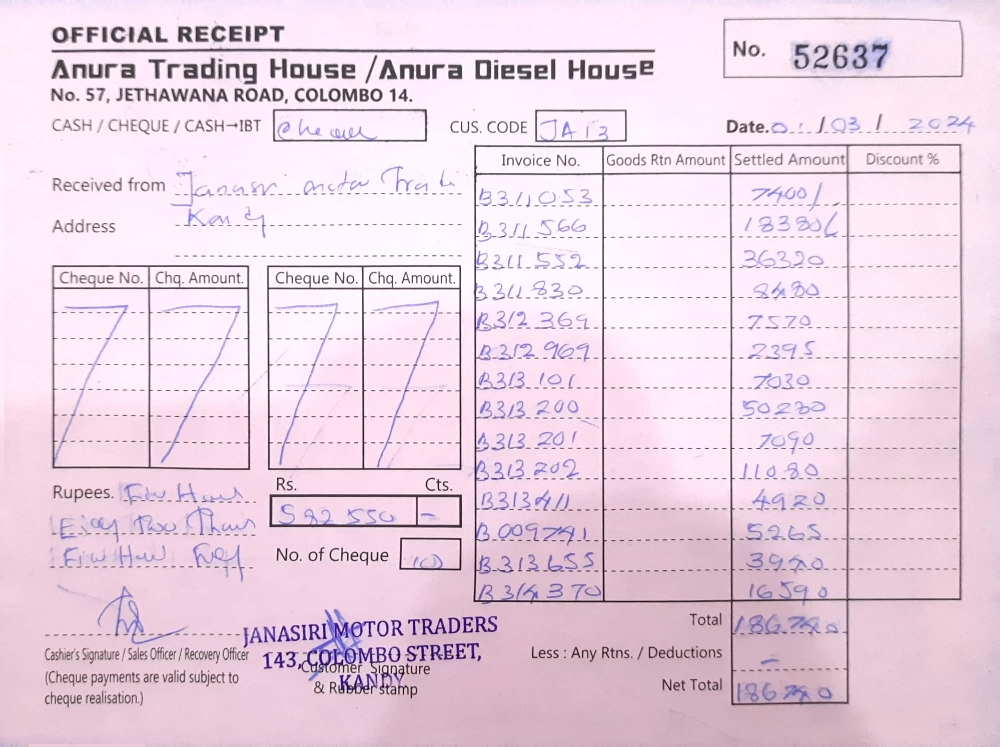 OFFICIAL RECEIPT
No. 52637
Anura Trading House /Anura Diesel House
No. 57, JETHAWANA ROAD, COLOMBO 14.
CASH / CHEQUE / CASH→IBT Cheque CUS. CODE JA13 Date. 01/03/2024
Invoice No. Goods Rtn Amount Settled Amount Discount %
Received from Janasiri motor Trad
Address Kandy
B311053 7400/
B311566 18380/
B311552 36320
B311830 8480
B312369 7570
B312969 2395
B313101 7030
B313200 50280
B313201 7090
B313202 11080
B313411 4920
B.009791 5265
B.313655 3940
B314370 16590
Cheque No. Chq. Amount. Cheque No. Chq. Amount.
Rupees. Five Hun
Eigty Two Thous
Five Hun Fifty
Rs. Cts.
582 550 =
No. of Cheque
Total 186740
Less : Any Rtns. / Deductions –
Net Total 186740
Cashier's Signature / Sales Officer / Recovery Officer
(Cheque payments are valid subject to
cheque realisation.)
JANASIRI MOTOR TRADERS
143, COLOMBO STREET,
KANDY
Customer Signature
& Rubber stamp